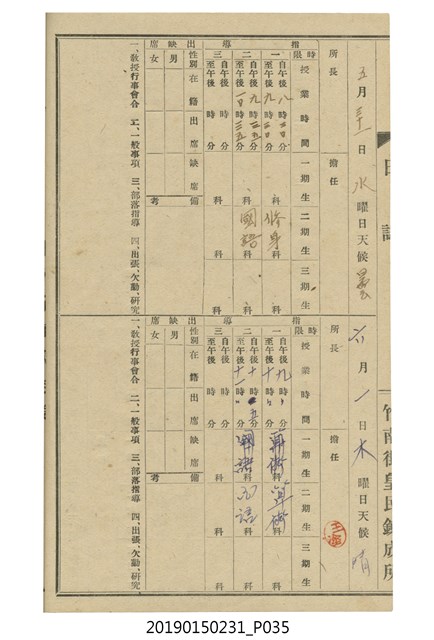 日誌
五月三十一日 水曜日 天候 曇
所長
擔任
指導
時限 授業時間 一期生 二期生 三期生
一 自午後八時 分 至午後九時 分 科 修身科
二 自午後九時 分 至午後 時 分 科 國語科
三 自午後 時 分 至午後 時 分 科 科 科
出缺席
性別 在籍 出席 缺席 備考
男
女
一、敎授行事會令 二、一般事項 三、部落指導 四、出張、欠勤、研究
竹南街皇民鍊成所
六月一日 木曜日 天候 晴
所長
擔任
指導
時限 授業時間 一期生 二期生 三期生
一 自午後九時 分 至午後十時 分 算術科 算術科 科
二 自午後十時 分 至午後十一時 分 國語科 國語科 科
三 自午後 時 分 至午後 時 分 科 科 科
出缺席
性別 在籍 出席 缺席 備考
男
女
一、敎授行事會令 二、一般事項 三、部落指導 四、出張、欠勤、研究
20190150231_P035